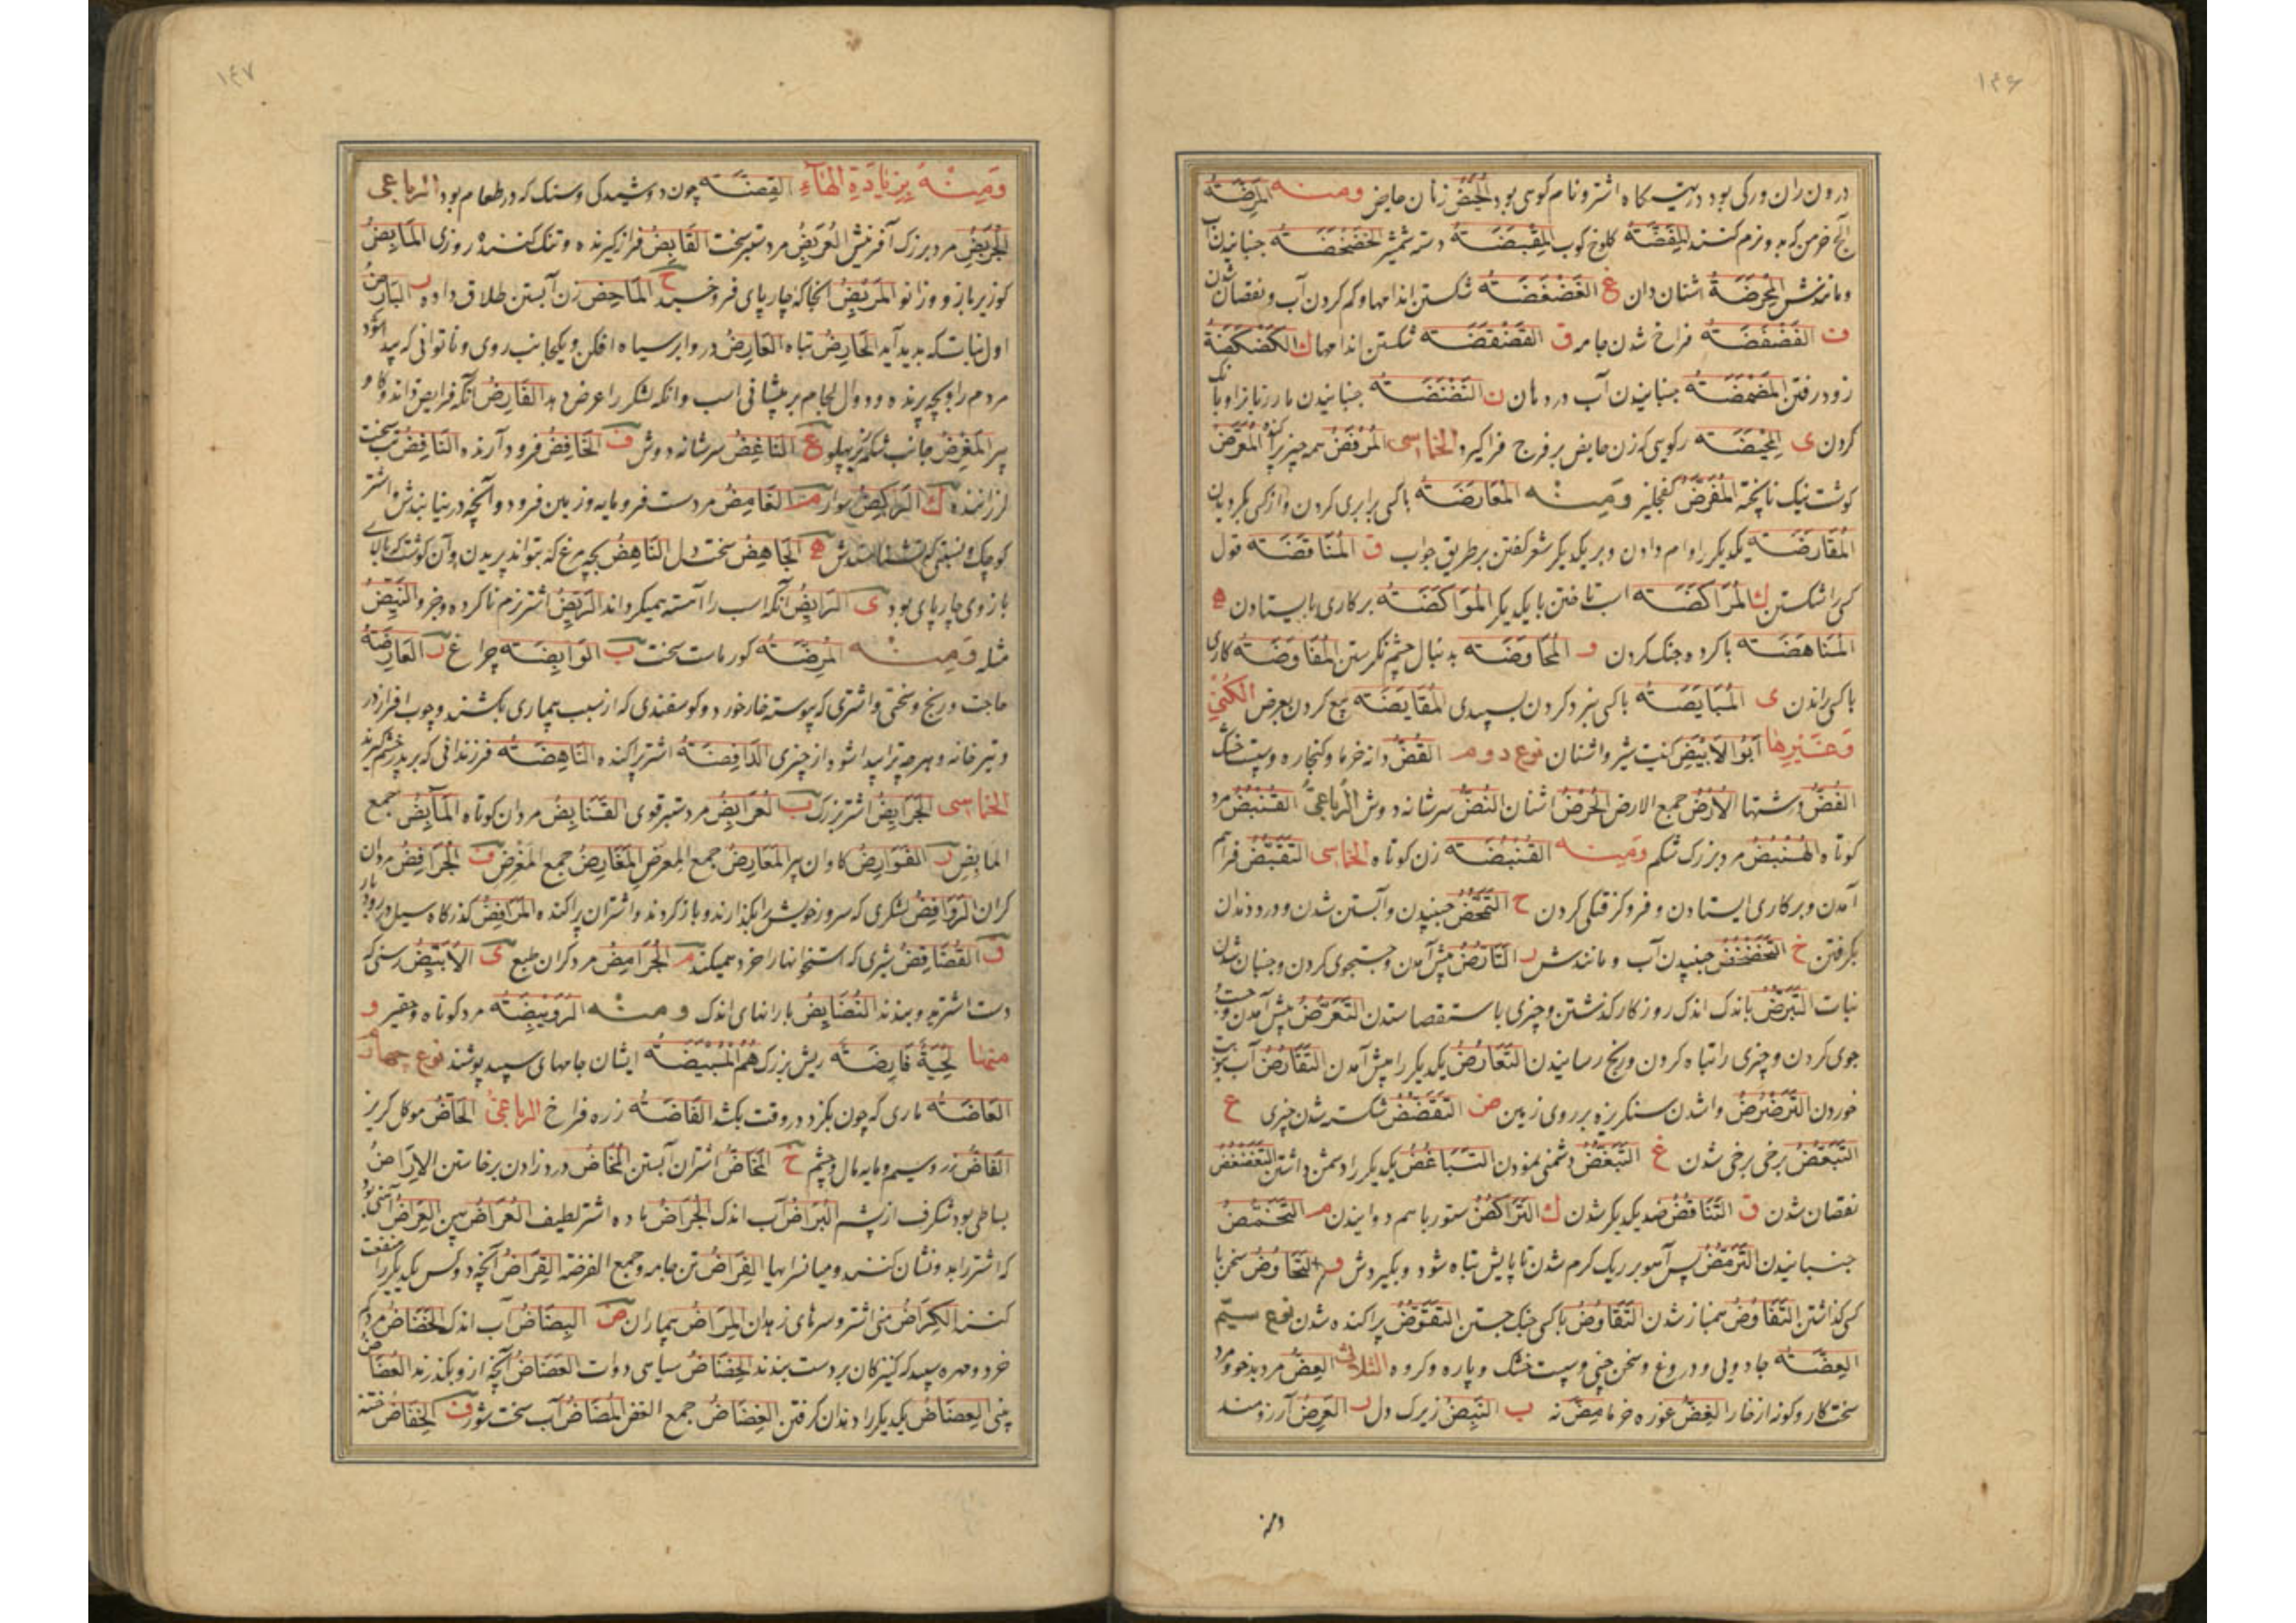 ۱۴۶
درون ران ورکی بود در پیت کاه اشتر و نام کوسی بود الحُیَّض زنان حایض ومنه المِرَضَّة
آنچ خرمن که بدو نرم کنند المِفَضَّة کلوخ کوب المِقبَضَة دسته شمشیر الخَضخَضَة جنبانیدن آب
و مانندش المِحرَضَة اشنان دان غ الغَضغَضَة شکستن اندامها و کم کردن آب و نقصان شدن
ف الفَضفَضَة فراخ شدن جامه ق القَضقَضَة شکستن اندامها ك الکَضکَضَة
زود رفتن المَضمَضَة جنبانیدن آب در دهان ن النَضنَضَة جنبانیدن مار زبانرا و بانک
کردن ی المَحیَضَة رکوی که زن حایض بر فرج فراکیرد الخماسی المُرفَضّ همه چیز پراکنده المُعَرَّض
کوشت نیک ناپخته المُفَرَّض کفچلیز ومنه المُعَارَضَة باکسی برابری کردن و از کسی بکردیدن
المُقَارَضَة یکدیکر را وام دادن و بر یکدیکر شعر کفتن بر طریق جواب ق المُنَاقَضَة قول
کسی را شکستن ك المُرَاکَضَة اسب تاختن با یکدیکر المُوَاکَضَة بر کاری بایستادن ه
المُنَاهَضَة باکروه جنک کردن و المُحَاوَضَة بدنبال چشم نکرستن المُفَاوَضَة کاری
باکسی راندن ی المُبَایَضَة باکسی نبرد کردن بسپیدی المُقَایَضَة بیع کردن بعرض الکُنی
وغیرها ابو الابیض کنیت شیر و اشنان نوع دوم القُضّ دانه خرما و کنجاره و سپست خشک
الغُضّ درشتها الاُرُض جمع الارض الحُرُض اشنان النُغض سر شانه دوش الرباعی القُنبُض مرد
کوتاه الهُنبُض مرد بزرک شکم ومنه القُنبُضَة زن کوتاه الخماسی التَقَبُّض فراهم
آمدن و بر کاری ایستادن و فروکرفتکی کردن ح التَمَخُّض جنبیدن و آبستن شدن و درد زه زدن
بکرفتن خ التَخَضخُض جنبیدن آب و مانندش ر التَأَرُّض پیش آمدن و جستجوی کردن و جنبان شدن
نبات التَبَرُّض باندک اندک روزکار کذشتن و چیزی باستقصا ستدن التَعَرُّض پیش آمدن و جست و
جوی کردن و چیزی را تباه کردن و رنج رسانیدن التَعَارُض یکدیکر را پیش آمدن التَقَارُض
خوردن التَرَضرُض واشدن سنکریزه بر روی زمین ض التَقَضُّض شکسته شدن چیزی ع
التَبَعُّض برخی برخی شدن غ التَبَغُّض دشمنی نمودن التَبَاغُض یکدیکر را دشمن داشتن التَغَضغُض
نقصان شدن ق التَنَاقُض ضد یکدیکر شدن ك التَرَاکُض ستور باهم دوانیدن م التَخَمُّض
جنبانیدن التَرَمُّض پس آهو بر ریک کرم شدن تا پایش تباه شود و بکیردش و التَخَاوُض سخن با
کسی کذاشتن التَفَاوُض همباز شدن التَقَاوُض باکسی جنک جستن التَقَوُّض پراکنده شدن نوع سیم
العِضَة جادویی و دروغ و سخن چینی و سپست خشک و پاره و کروه الثلاثی العِضّ مرد بدخو و مرد
سخت کار و کونه از خار الغِضّ غوره خرما مِضّ نه ب النَبِض زیرک دل ر العَرِض آرزومند
ومنه
۱۴۷
ومنه بزیادة الهاء القِضَّة چون دوشیدکی و سنک که در طعام بود الرباعی
الجِرَبِض مرد بزرک آفرینش العُرَبِض مرد ستبر سخت القَابِض فرازکیرنده و تنک کننده روزی المَابِض
کوزیر بازو و زانو المَربِض آنجا که چارپای فرو خسبد ح المَاحِض زن آبستن طلاق داده ر البَارِض
اول نبات که پدید آید الحَارِض تباه العَارِض در و ابر سیاه افکن و یکجانب روی و ناتوانی که پیدا شود
مردم را و بچه پرنده و دوال لجام بر پیشانی اسب و آنکه لشکر را عرض دهد الفَارِض آنکه فرایض داند و کاو
پیر المَغرِض جانب شکم نیز پهلو غ النَاغِض سر شانه دوش ف الخَافِض فرود آرنده النَافِض تب سخت
لرزاننده ك الرَاکِض سوار م الغَامِض مرد سست فرومایه و زمین فرود و آنچه در نیابندش و اشتر
کوچک و نسبتی که نشناسندش ه الجَاهِض سخت دل النَاهِض بچه مرغ که بتواند پریدن و آن کوشت که بالای
بازوی چارپای بود ی الرَایِض آنکه اسب را آهسته همیکرداند الرَیِّض اشتر نرم ناکرده و جز و
مثله ومنه المُرِضَّة کورماست سخت ب الوَابِضَة چراغ ر العَارِضَة
حاجت و رنج و سختی و اشتری که پیوسته خار خورد و کوسفندی که از سبب بیماری بکشند و چوب افراز در
و تیر خانه و هرچه ترا پیدا شود از چیزی الدَافِضَة اشتر پراکنده النَاهِضَة فرزندانی که بر پدر خشم کیرند
الخماسی الجُرَابِض اشتر بزرک ب العُرَابِض مرد ستبر قوی القَنَابِض مردان کوتاه المَآبِض جمع
المابِض ر الفَوَارِض کاوان پیر المَعَارِض جمع المِعرض المَغَارِض جمع المَغرِض ف الجُرَافِض مردان
کران الرَوَافِض لشکری که سرور خویش را بکذارند و باز کردند و اشتران پراکنده المَرَافِض کذرکاه سیل و رودبار
ق القُضَاقِض شیری که استخوانها را خرد همیکند م الجُرَامِض مرد کران طبع ی الاُبَیِّض رسنی که
دست اشتر بدو ببندند النَضَایِض بارانهای اندک ومنه الرُوَیبِضَة مرد کوتاه و حقیر و
منها لِحیَة فَایِضَة ریش بزرک هم المُبَیِّضَة ایشان جامهای سپید پوشند نوع چهارم
العَاضَة ماری که چون بکزد در وقت بکشد الفَاضَة زره فراخ الرباعی الحَاضّ موکل کریز
الفَاضّ زر و سیم و مایه مال و چشم خ المَخَاض اشتران آبستن المَخَاض درد زادن برخاستن الاِرَاض
بساطی بود شکرف از پشم البُرَاض آب اندک الجُرَاض ماده اشتر لطیف العُرَاض پهن العِرَاض آهنی بود
که اشتر را بدو نشان کنند و میانسرایها الفِرَاض تن جامه و جمع الفرضة القِرَاض آنچه دو کس یکدیکر را منفعت
کنند الکِرَاض منی اشتر و سرهای زهدان المِرَاض بیماران ض البِضَاض آب اندک الخَضَاض مرد کم
خرد و مهره سپید که کنیزکان بر دست بندند الخِضَاض سیاهی دوات العَضَاض آنچه ازو بکذرند العُضَاض
بینی العِضَاض یکدیکر را دندان کرفتن الغِضَاض جمع الغض المُضَاض آب سخت شور ف الخِفَاض ختنه